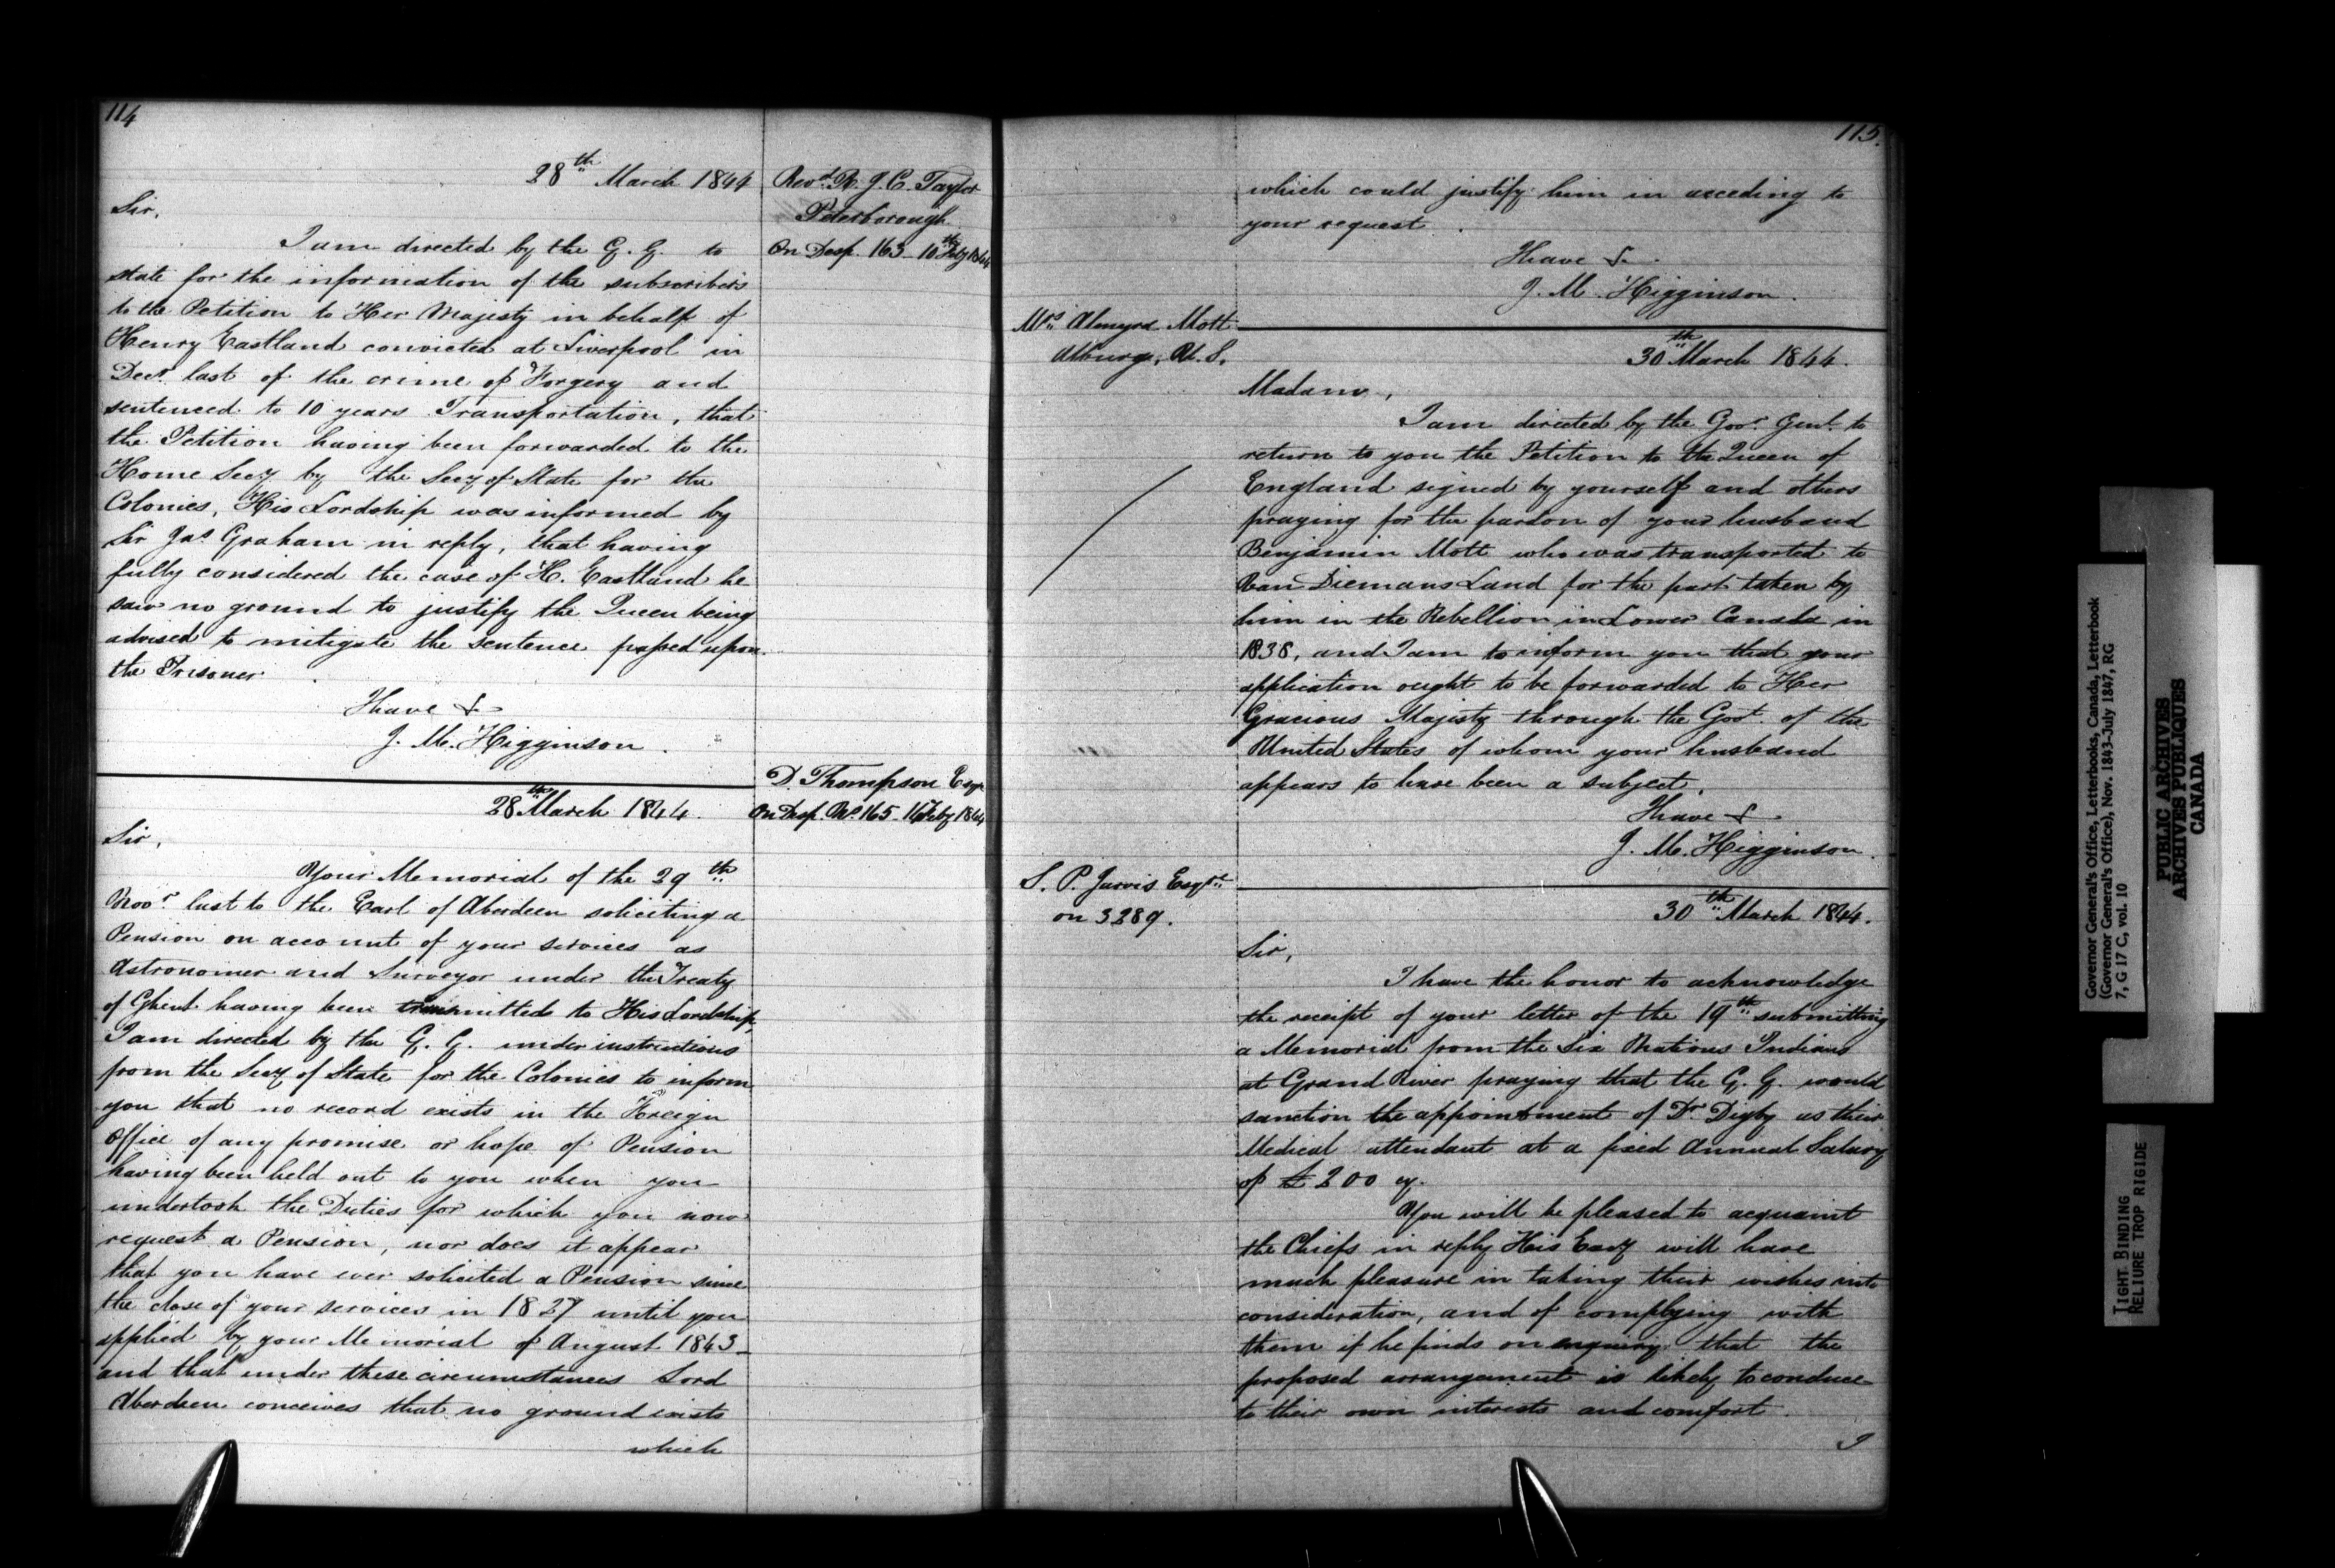 114
28th March 1844
Revd. R. J. C. Taylor
Peterborough
On Desp. 163 10th Feby 1844
Sir,
I am directed by the G. G. to
state for the information of the subscribers
to the Petition to Her Majesty in behalf of
Henry Eastland convicted at Liverpool in
Decr. last of the crime of Forgery and
sentenced to 10 years Transportation, that
the Petition having been forwarded to the
Home Secy by the Secy of State for the
Colonies, His Lordship was informed by
Sir Jas Graham in reply, that having
fully considered the case of H. Eastland he
saw no ground to justify the Queen being
advised to mitigate the sentence passed upon
the Prisoner.
I have &-
J. M. Higginson.
D. Thompson Esqr
On Desp. No. 165 - 14 Feby 1844
28th March 1844.
Sir,
Your Memorial of the 29th
Novr. last to the Earl of Aberdeen soliciting a
Pension on account of your services as
Astronomer and Surveyor under the Treaty
of Ghent having been transmitted to His Lordship,
I am directed by the G. G. under instructions
from the Secy of State for the Colonies to inform
you that no record exists in the Foreign
Office of any promise or hope of Pension
having been held out to you when you
undertook the Duties for which you now
request a Pension, nor does it appear
that you have ever solicited a Pension since
the close of your services in 1827 until you
applied by your Memorial of August 1843 -
and that under these circumstances Lord
Aberdeen conceives that no ground exists
which
115.
which could justify him in acceding to
your request.
I have &-
J. M. Higginson.
Mrs Almyra Mott
Alburge, U. S.
30th March 1844.
Madam,
I am directed by the Govr. Genl. to
return to you the Petition to the Queen of
England signed by yourself and others
praying for the pardon of your husband
Benjamin Mott who was transported to
Van Diemans Land for the part taken by
him in the Rebellion in Lower Canada in
1838, and I am to inform you that your
application ought to be forwarded to Her
Gracious Majesty through the Govt. of the
United States of whom your husband
appears to have been a subject.
I have &-
J. M. Higginson.
S. P. Jarvis Esqre
on 3289.
30th March 1844.
Sir,
I have the honor to acknowledge
the receipt of your letter of the 19th submitting
a Memorial from the Six Nations Indians
at Grand River praying that the G. G. would
sanction the appointment of Dr Digby as their
Medical attendant at a fixed Annual Salary
of £200 cy.
You will be pleased to acquaint
the Chiefs in reply His Excy will have
much pleasure in taking their wishes into
consideration, and of complying with
them if he finds on enquiry that the
proposed arrangement is likely to conduce
to their own interests and comfort.
I
Governor General's Office, Letterbooks, Canada, Letterbook
(Governor General's Office), Nov. 1843-July 1847, RG
7, G 17 C, vol. 10
PUBLIC ARCHIVES
ARCHIVES PUBLIQUES
CANADA
TIGHT BINDING
RELIURE TROP RIGIDE